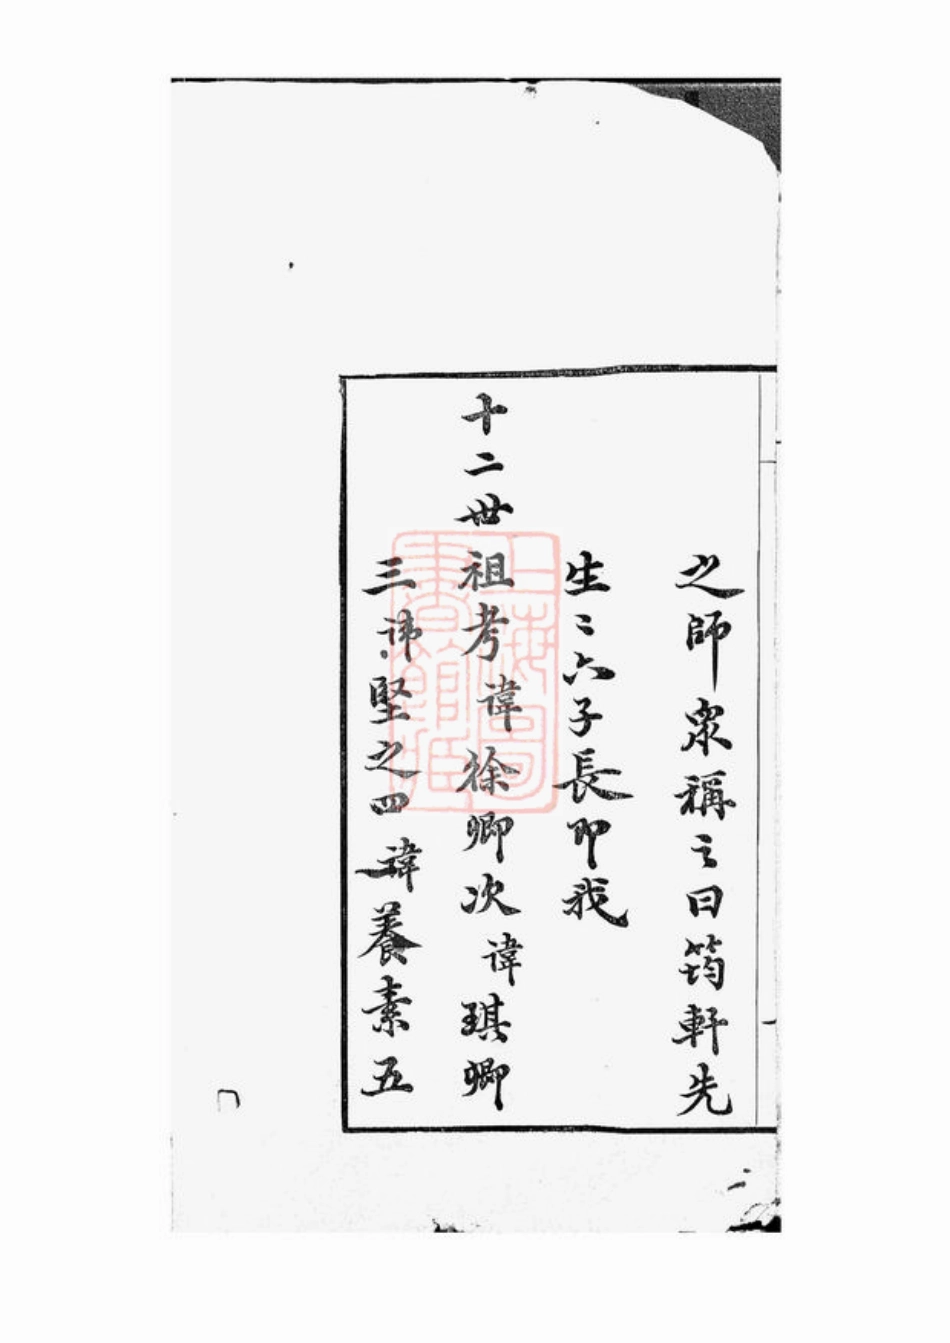 之師眾稱之曰筠軒先
生〻六子長即我
十二世祖考諱徐卿次諱琪卿
三諱堅之四諱養素五
上海圖書館藏